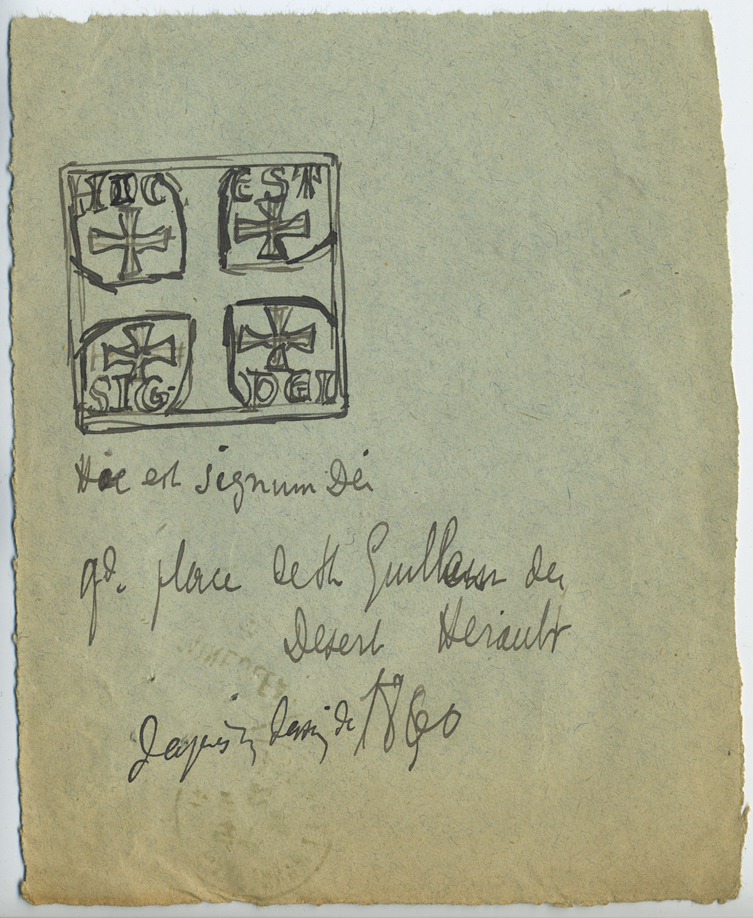 HIC EST
SIG DEI
Hic est signum Dei
gd. place de St Guillem du
Desert Herault
Dapres un dessin de 1860